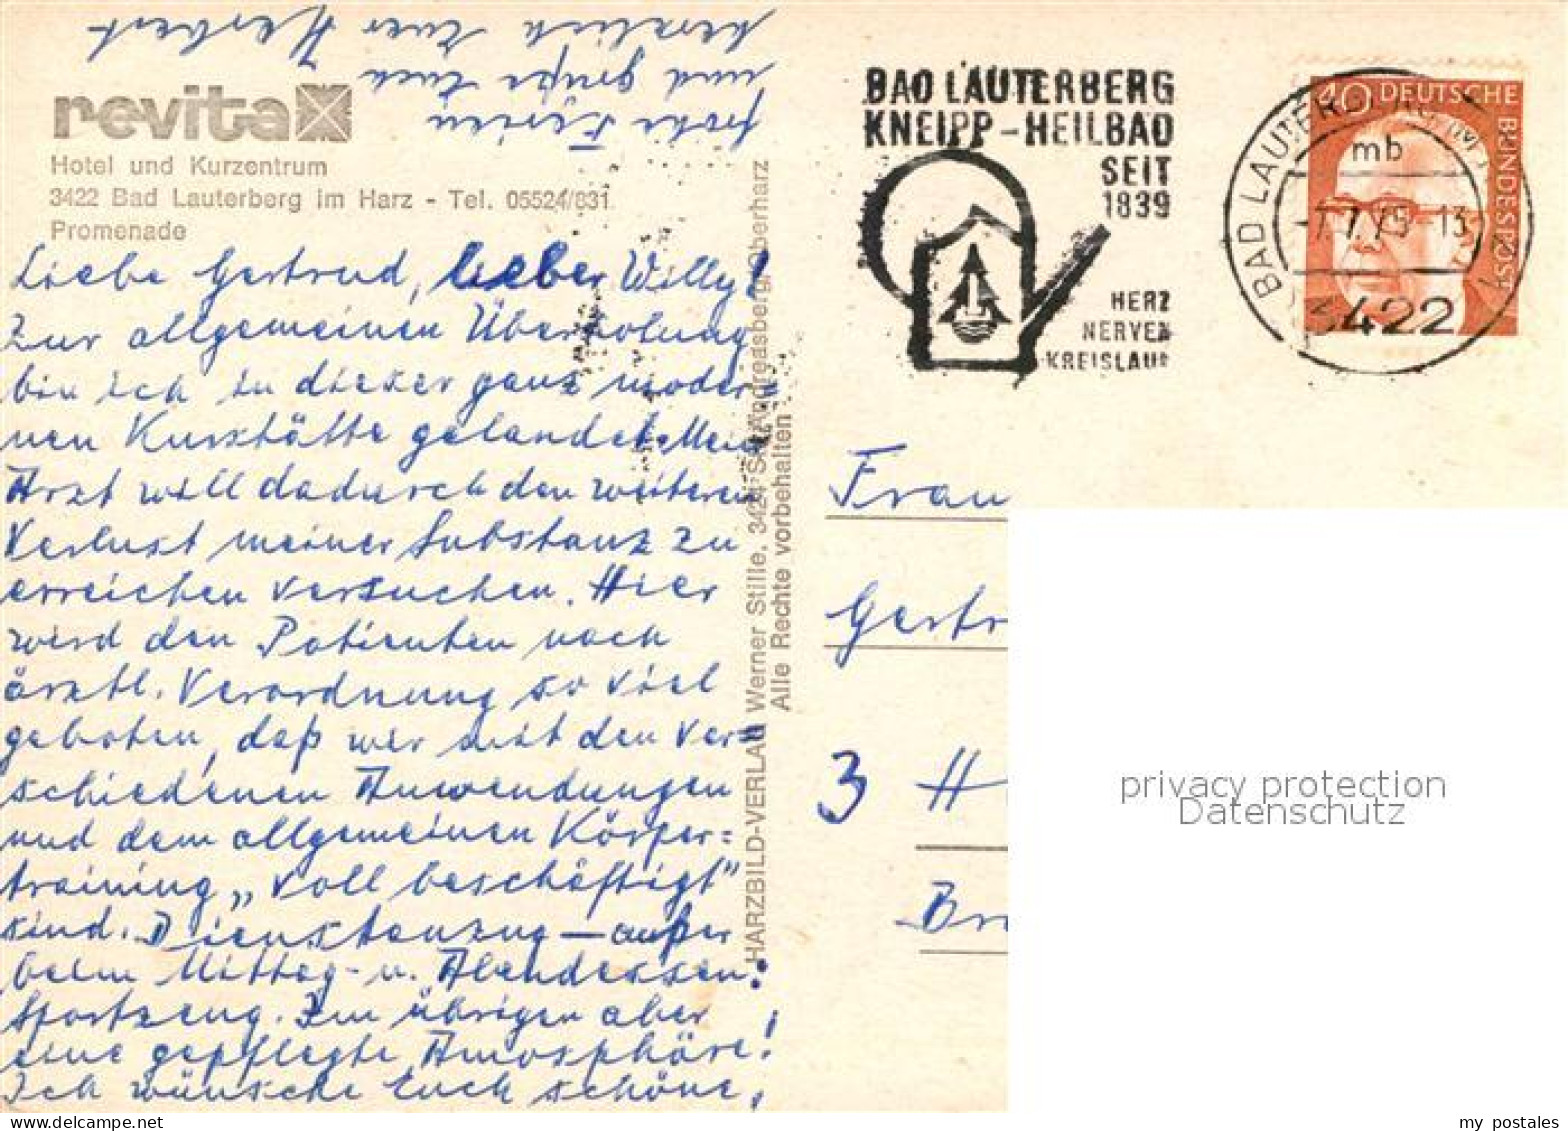 revita
Hotel und Kurzentrum
3422 Bad Lauterberg im Harz - Tel. 05524/831
Promenade
Liebe Gertrud, lieber Willy!
Zur allgemeinen Überholung
bin ich in dieser ganz moder-
nen Kurstätte gelandet. Mein
Arzt will dadurch den weiteren
Verlust meiner Substanz zu
erreichen versuchen. Hier
wird den Patienten nach
ärztl. Verordnung so viel
geboten, daß wir mit den ver=
schiedenen Anwendungen
und dem allgemeinen Körper=
training „voll beschäftigt"
sind. Dienstanzug — außer
beim Mittag- u. Abendessen:
Sportzeug. Im übrigen aber
eine gepflegte Atmosphäre!
Ich wünsche Euch schöne,
frohe Ferien
und grüße Euch
herzlich Euer Herbert
HARZBILD-VERLAG Werner Stille, 3424 St. Andreasberg/Oberharz
Alle Rechte vorbehalten
BAD LAUTERBERG
KNEIPP-HEILBAD
SEIT
1839
HERZ
NERVEN
KREISLAUF
BAD LAUTERBERG IM
mb
3422
40 DEUTSCHE BUNDESPOST
Frau
Gertr
3 H
Br
privacy protection
Datenschutz
my postales